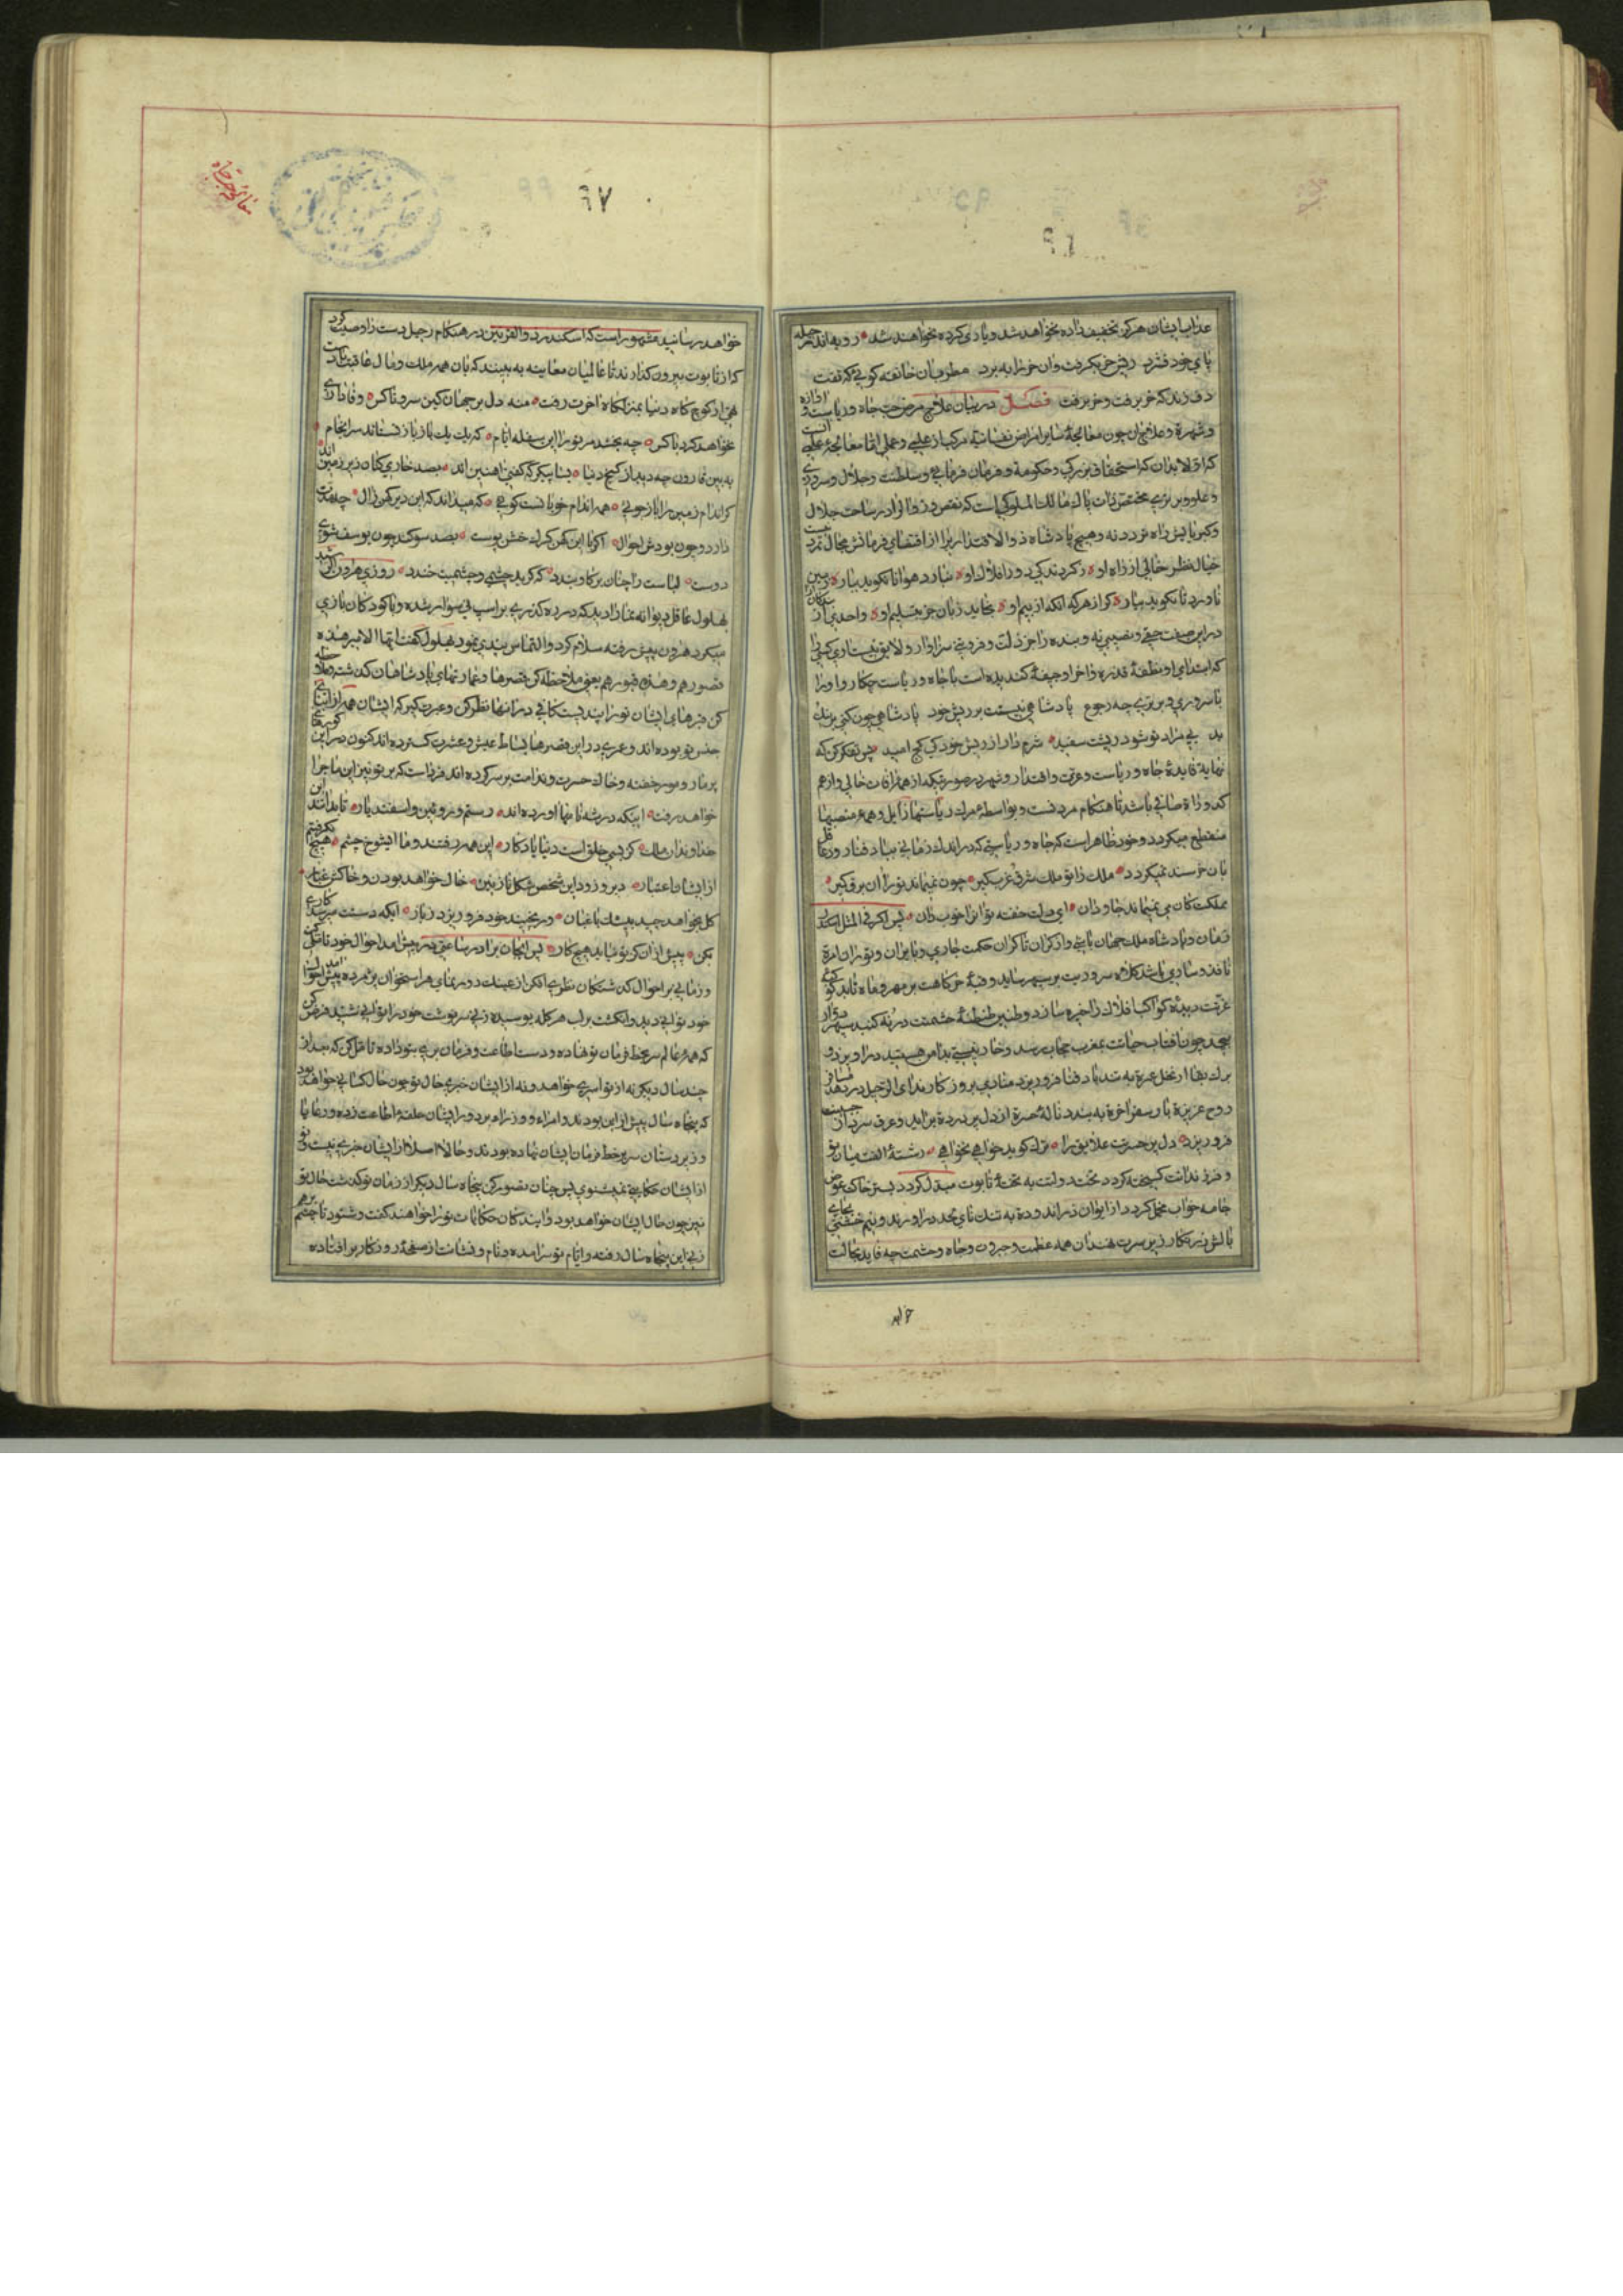 عذاب ایشان هرگز تخفیف داده نخواهد شد و یاری کرده نخواهند شد روبه اندر حیله
پای خود فشرد ریش خر بگرفت وان خر را ببرد مطرب آن خانقه کو تا که تفت
دف زند که خر برفت و خر برفت فصل در بیان علاج مرض حب جاه و ریاست و آوازه
و شهرة و علاج آن چون معالجهٔ سایر امراض نفسانیة مرکب از علمی و عملی اما معالجهٔ علمی آنست
که اولا بدان که استحقاق بزرگی و حکومة و فرمان فرمایی و سلطنت و جلال و سروری
و علو و برتری مختص ذات پاک مالک الملوکی است که نقص در زوال او در ساحت جلال
و کبریایش راه ندارد نه و هیچ پادشاه ذوالاقتداری را از اقتضای فرمانش مجال تمرد نیست
خیال نظر خالی از راه او ز گردندگی دور افلاک او نبارد هوا تا نگوید ببار زمین
ناورد تا نگوید بیار کرا زهره آنکه از بیم او گشاید زبان جز بتسلیم او و احدی از بندگان
در این صفت حقی و نصیبی نه و بنده را جز ذلت و فروتنی سزاوار و لایق نیست آری کسی را
که ابتدای او نطفهٔ قذره و آخر او جیفهٔ گندیده است با جاه و ریاست چکار و او را
با سروری و برتری چه رجوع پادشاهی نیستت بر ریش خود پادشاهی چون کنی بر نیک
بد بی مراد تو شود ریشت سفید شرم دار از ریش خود کی کج امید پس تفکر کن که
نهایة فایدهٔ جاه و ریاست و عزت و اقتدار و شهره در صورتیکه از همه آفات خالی و از هم
کدورة صافی باشد تا هنگام مردنست و بواسطهٔ مرگ ریاستها زایل و همه منصبها
منقطع میگردد و خود ظاهر است که جاه و ریاستی که در اندک زمانی بباد فنا رود عاقل
بآن خرسند نمیگردد ملک را تو ملک شرق غرب گیر چون نمیماند تو را آن برق گیر
مملکت کان می نمیماند جاودان ای دلت خفته تو آنرا خوب دان پس اگر فی المثل اسکندر
زمان و پادشاه ملک جهان باشی و از کران تا کران حکمت جاری و بایران و توران امرة
نافذ و ساری باشد کلاه سروریت بر سپهر ساید و قبهٔ خرگاهت بر مهر و ماه تابد کوکبهٔ
عزت دیدهٔ کواکب افلاک را خیره سازد و طنین طنطنهٔ حشمتت در نه گنبد سپهر دوار
پیچد چون آفتاب حیاتت بمغرب ممات رسد و خار نیستی بدامن هستیت در آویزد و
برگ بقا از نخل عمرة به تندباد فنا فروریزد منادی پروردگار ندای الرحیل در دهد مسافر
روح عزیزة بار سفر آخرة به بندد نالهٔ حسرة از دل پر دردة برآید و عرق سرد از جبینت
فرو ریزد دل پر حسرت علایق را ترک گوید خواهی نخواهی رشتهٔ الفت میان تو
و فرزندانت گسیخته گردد تخت دولت به تختهٔ تابوت مبدل گردد بستر خاک عوض
جامه خواب مخمل گردد از ایوان زراندودة به تنگنای لحد درآورند و نیم خشتی بجای
بالش زرنگار زیر سرت نهند آن همه عظمت و جبروت و جاه و حشمت چه فایده بحالت
خواهد
۶۷
خواهد رسانید مشهور است که اسکندر ذوالقرنین در هنگام رحیل دست را وصیت کرد
که از تابوت بیرون گذارند تا عالمیان معاینه به بینند که بآن همه ملک و مال عاقبت دست
تهی از کوچ گاه دنیا بمنزلگاه آخرت رفت منه دل بر جهان کین سرد ناکس وفاداری
نخواهد کرد با کس چه بخشد مر تو را این سفله ایام که یک یک باز نستاند سرانجام
به بین قارون چه دید از گنج دنیا بسا پیکر که گفتی آهنین اند بصد خاری کنان زیر زمین اند
گر اندام زمین را بازجوئی همه اندام خوبانست گوئی که میداند که این دیر کهن زال چه مدت
دارد و چون بودش احوال اگر با این کهن گرگ خشن پوست بصد سوگند چون یوسف شوی
دوست لباست را چنان بر گاو بندد که گرید چشمی و چشمیت خندد روزی هرون الرشید
بهلول عاقل دیوانه نما را دید که در ره گذری بر اسپ نی سوار شده و با کودکان بازی
میکرد هرون پیش رفته سلام کرد و التماس پندی نمود بهلول گفت ایها الامیر هذه
قصورهم و هذه قبورهم یعنی ملاحظه کن قصرها و عمارتهای پادشاهان گذشته و ملاحظه
کن قبرهای ایشان تو را پندیست کافی در آنها نظر کن و عبرت گیر که ایشان هم از ابنای
جنس تو بوده اند و عمری در این قصرها بساط عیش و عشرت گسترده اند کنون در این گورهای
پر مار و مور خفته و خاک حسرت و ندامت بر سر کرده اند فرداست که بر تو نیز این ماجرا
خواهد رفت اینکه در شهنامها آورده اند رستم و روئین و اسفندیار تا بدانند این
خداوندان ملک کز بسی خلق است دنیا یادگار این همه رفتند و ما ای شوخ چشم هیچ نگرفتیم
از ایشان اعتبار دیر و زود این شخص شکل نازنین خاک خواهد بودن و خاکش غبار
گل بخواهد چید بیشک باغبان ور نچیند خود فرو ریزد ز بار ایکه دستت میرسد کاری
بکن پیش از آن کز تو نیاید هیچ کار پس ایجان برادر ساعتی در پیش آمد احوال خود تامل کن
و زمانی بر احوال گذشتگان نظری افکن از عینک دور نمای هر استخوان پژمرده پیش آمد احوال
خود توانی دید و انگشت بر لب هر کله پوسیده زنی سرنوشت خود را توانی شنید فرض کن
که همهٔ عالم سر بخط فرمان تو نهاده و دست اطاعت و فرمان بری بتو داده تامل کن که بعد از
چند سال دیگر نه از تو اسری خواهد و نه از ایشان خبری حال تو چون حال کسانی خواهد بود
که پنجاه سال پیش از این بودند و امراء و وزراء هم بر در ایشان حلقه اطاعت زده و رعایا
و زیردستان سر بخط فرمان ایشان نهاده بودند و حالا اصلا از ایشان خبری نیست و تو
از ایشان حکایتی نمیشنوی پس چنان تصور کن پنجاه سال دیگر از زمان تو گذشت حال تو
نیز چون حال ایشان خواهد بود و آیندگان حکایات تو را خواهند گفت و شنود تا چشم برهم
زنی این پنجاه سال رفته و ایام تو سرآمده و نام و نشانت از صفحهٔ روزگار برافتاده